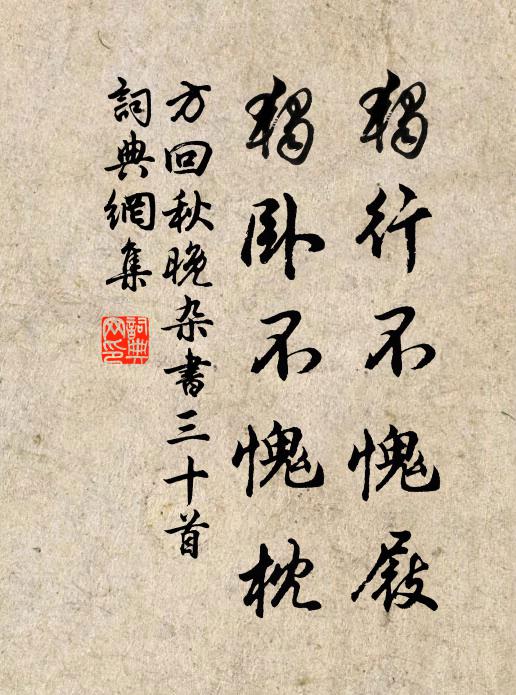 獨行不愧屐
獨卧不愧枕
方回秋晚杂書三十首
詞典網集
詞典
网印